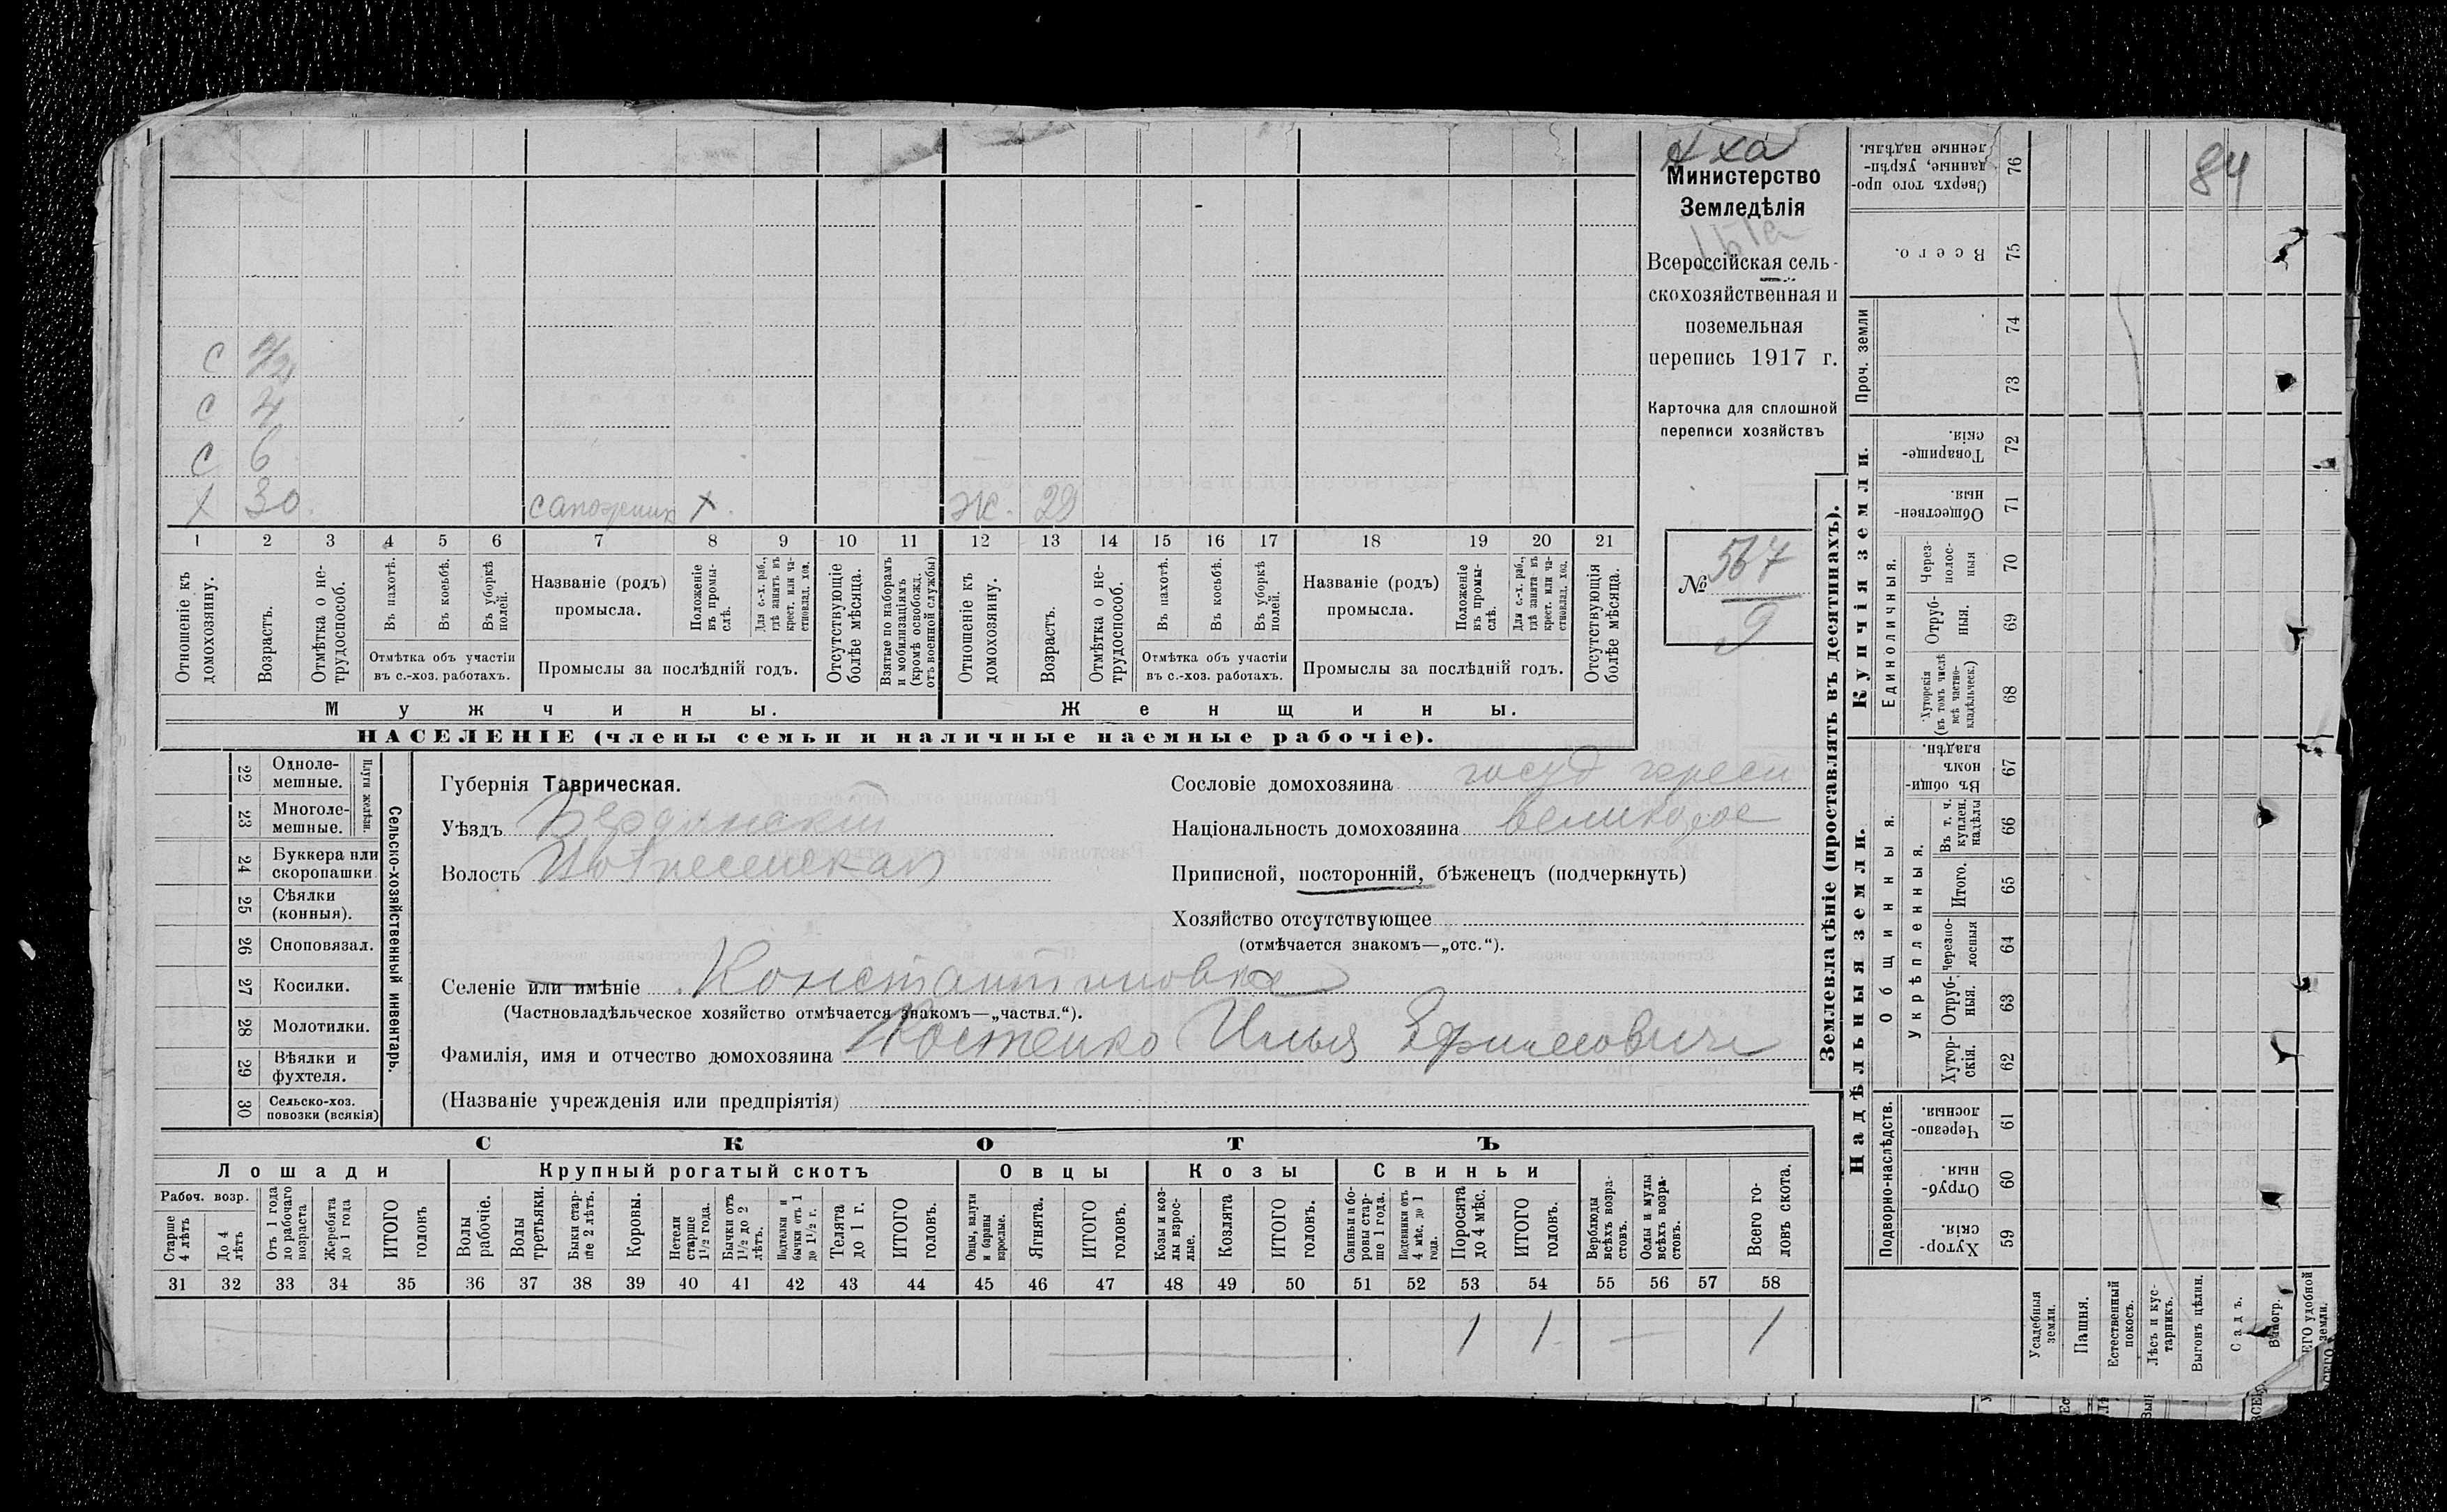 84
Министерство
Земледѣлія
Всероссійская сель-
скохозяйственная и
поземельная
перепись 1917 г.
Карточка для сплошной
переписи хозяйствъ
№ 567
9
С
С 4
С 6
Х 30. сапожник х. Ж. 29
1 2 3 4 5 6 7 8 9 10 11 12 13 14 15 16 17 18 19 20 21
Отношеніе къ домохозяину.
Возрастъ.
Отмѣтка о не-трудоспособ.
Въ пахотѣ.
Въ косьбѣ.
Въ уборкѣ полей.
Отмѣтка объ участіи
въ с.-хоз. работахъ.
Названіе (родъ)
промысла.
Положеніе въ промы-слѣ.
Для с.-х. раб., гдѣ занятъ въ крест. или ча-стновлад. хоз.
Промыслы за послѣдній годъ.
Отсутствующіе болѣе мѣсяца.
Взятые по наборамъ и мобилизаціямъ (кромѣ освобожд. отъ военной службы)
Отношеніе къ домохозяину.
Возрастъ.
Отмѣтка о не-трудоспособ.
Въ пахотѣ.
Въ косьбѣ.
Въ уборкѣ полей.
Отмѣтка объ участіи
въ с.-хоз. работахъ.
Названіе (родъ)
промысла.
Положеніе въ промы-слѣ.
Для с.-х. раб., гдѣ занята въ крест. или ча-стновлад. хоз.
Промыслы за послѣдній годъ.
Отсутствующія болѣе мѣсяца.
Мужчины.
Женщины.
НАСЕЛЕНІЕ (члены семьи и наличные наемные рабочіе).
22 Одноле-мешные.
23 Многоле-мешные.
Плуги желѣзн.
24 Буккера или скоропашки
25 Сѣялки (конныя).
26 Сноповязал.
27 Косилки.
28 Молотилки.
29 Вѣялки и фухтеля.
30 Сельско-хоз. повозки (всякія)
Сельско-хозяйственный инвентарь.
Губернія Таврическая.
Уѣздъ Бердянскій
Волость Вознесенская
Селеніе или имѣніе Константиновка
(Частновладѣльческое хозяйство отмѣчается знакомъ—„частвл.“).
Фамилія, имя и отчество домохозяина Костенко Илья Ефимович
(Названіе учрежденія или предпріятія)
Сословіе домохозяина госуд кресті
Національность домохозяина великорос
Приписной, посторонній, бѣженецъ (подчеркнуть)
Хозяйство отсутствующее
(отмѣчается знакомъ—„отс.“).
СКОТЪ
Лошади Крупный рогатый скотъ Овцы Козы Свиньи
Рабоч. возр.
Старше 4 лѣтъ
До 4 лѣтъ
Отъ 1 года до рабочаго возраста
Жеребята до 1 года
ИТОГО головъ
Волы рабочіе.
Волы третьяки.
Быки стар-ше 2 лѣтъ.
Коровы.
Нетели старше 1½ года.
Бычки отъ 1½ до 2 лѣтъ.
Подтелки и бычки отъ 1 до 1½ г.
Телята до 1 г.
ИТОГО головъ.
Овцы, валухи и бараны взрослые.
Ягнята.
ИТОГО головъ.
Козы и коз-лы взрос-лые.
Козлята
ИТОГО головъ.
Свиньи и бо-ровы стар-ше 1 года.
Подсвинки отъ 4 мѣс. до 1 года.
Поросята до 4 мѣс.
ИТОГО головъ.
Верблюды всѣхъ возра-стовъ.
Ослы и мулы всѣхъ возра-стовъ.
Всего го-ловъ скота.
31 32 33 34 35 36 37 38 39 40 41 42 43 44 45 46 47 48 49 50 51 52 53 54 55 56 57 58
1 1 — 1
Землевладѣніе (проставлять въ десятинахъ).
Надѣльныя земли.
Купчія земли.
Проч. земли
Подворно-наслѣдств.
Общинныя.
Укрѣпленныя.
Единоличныя.
Сверхъ того про-данные, укрѣп-ленные надѣлы. 76
Всего. 75
74
73
Товарище-скія. 72
Обществен-ныя. 71
Через-полос-ныя 70
Отруб-ныя. 69
Хуторскія (въ томъ числѣ всѣ частно-владѣльческ.) 68
Въ общи-номъ владѣн. 67
Въ т. ч. куплен. надѣлы 66
Итого. 65
Черезпо-лосныя 64
Отруб-ныя. 63
Хутор-скія. 62
Черезпо-лосныя. 61
Отруб-ныя. 60
Хутор-скія. 59
Усадебныя земли.
Пашня.
Естественный покосъ.
Лѣсъ и кус-тарникъ.
Выгонъ цѣлин.
Садъ.
Виногр.